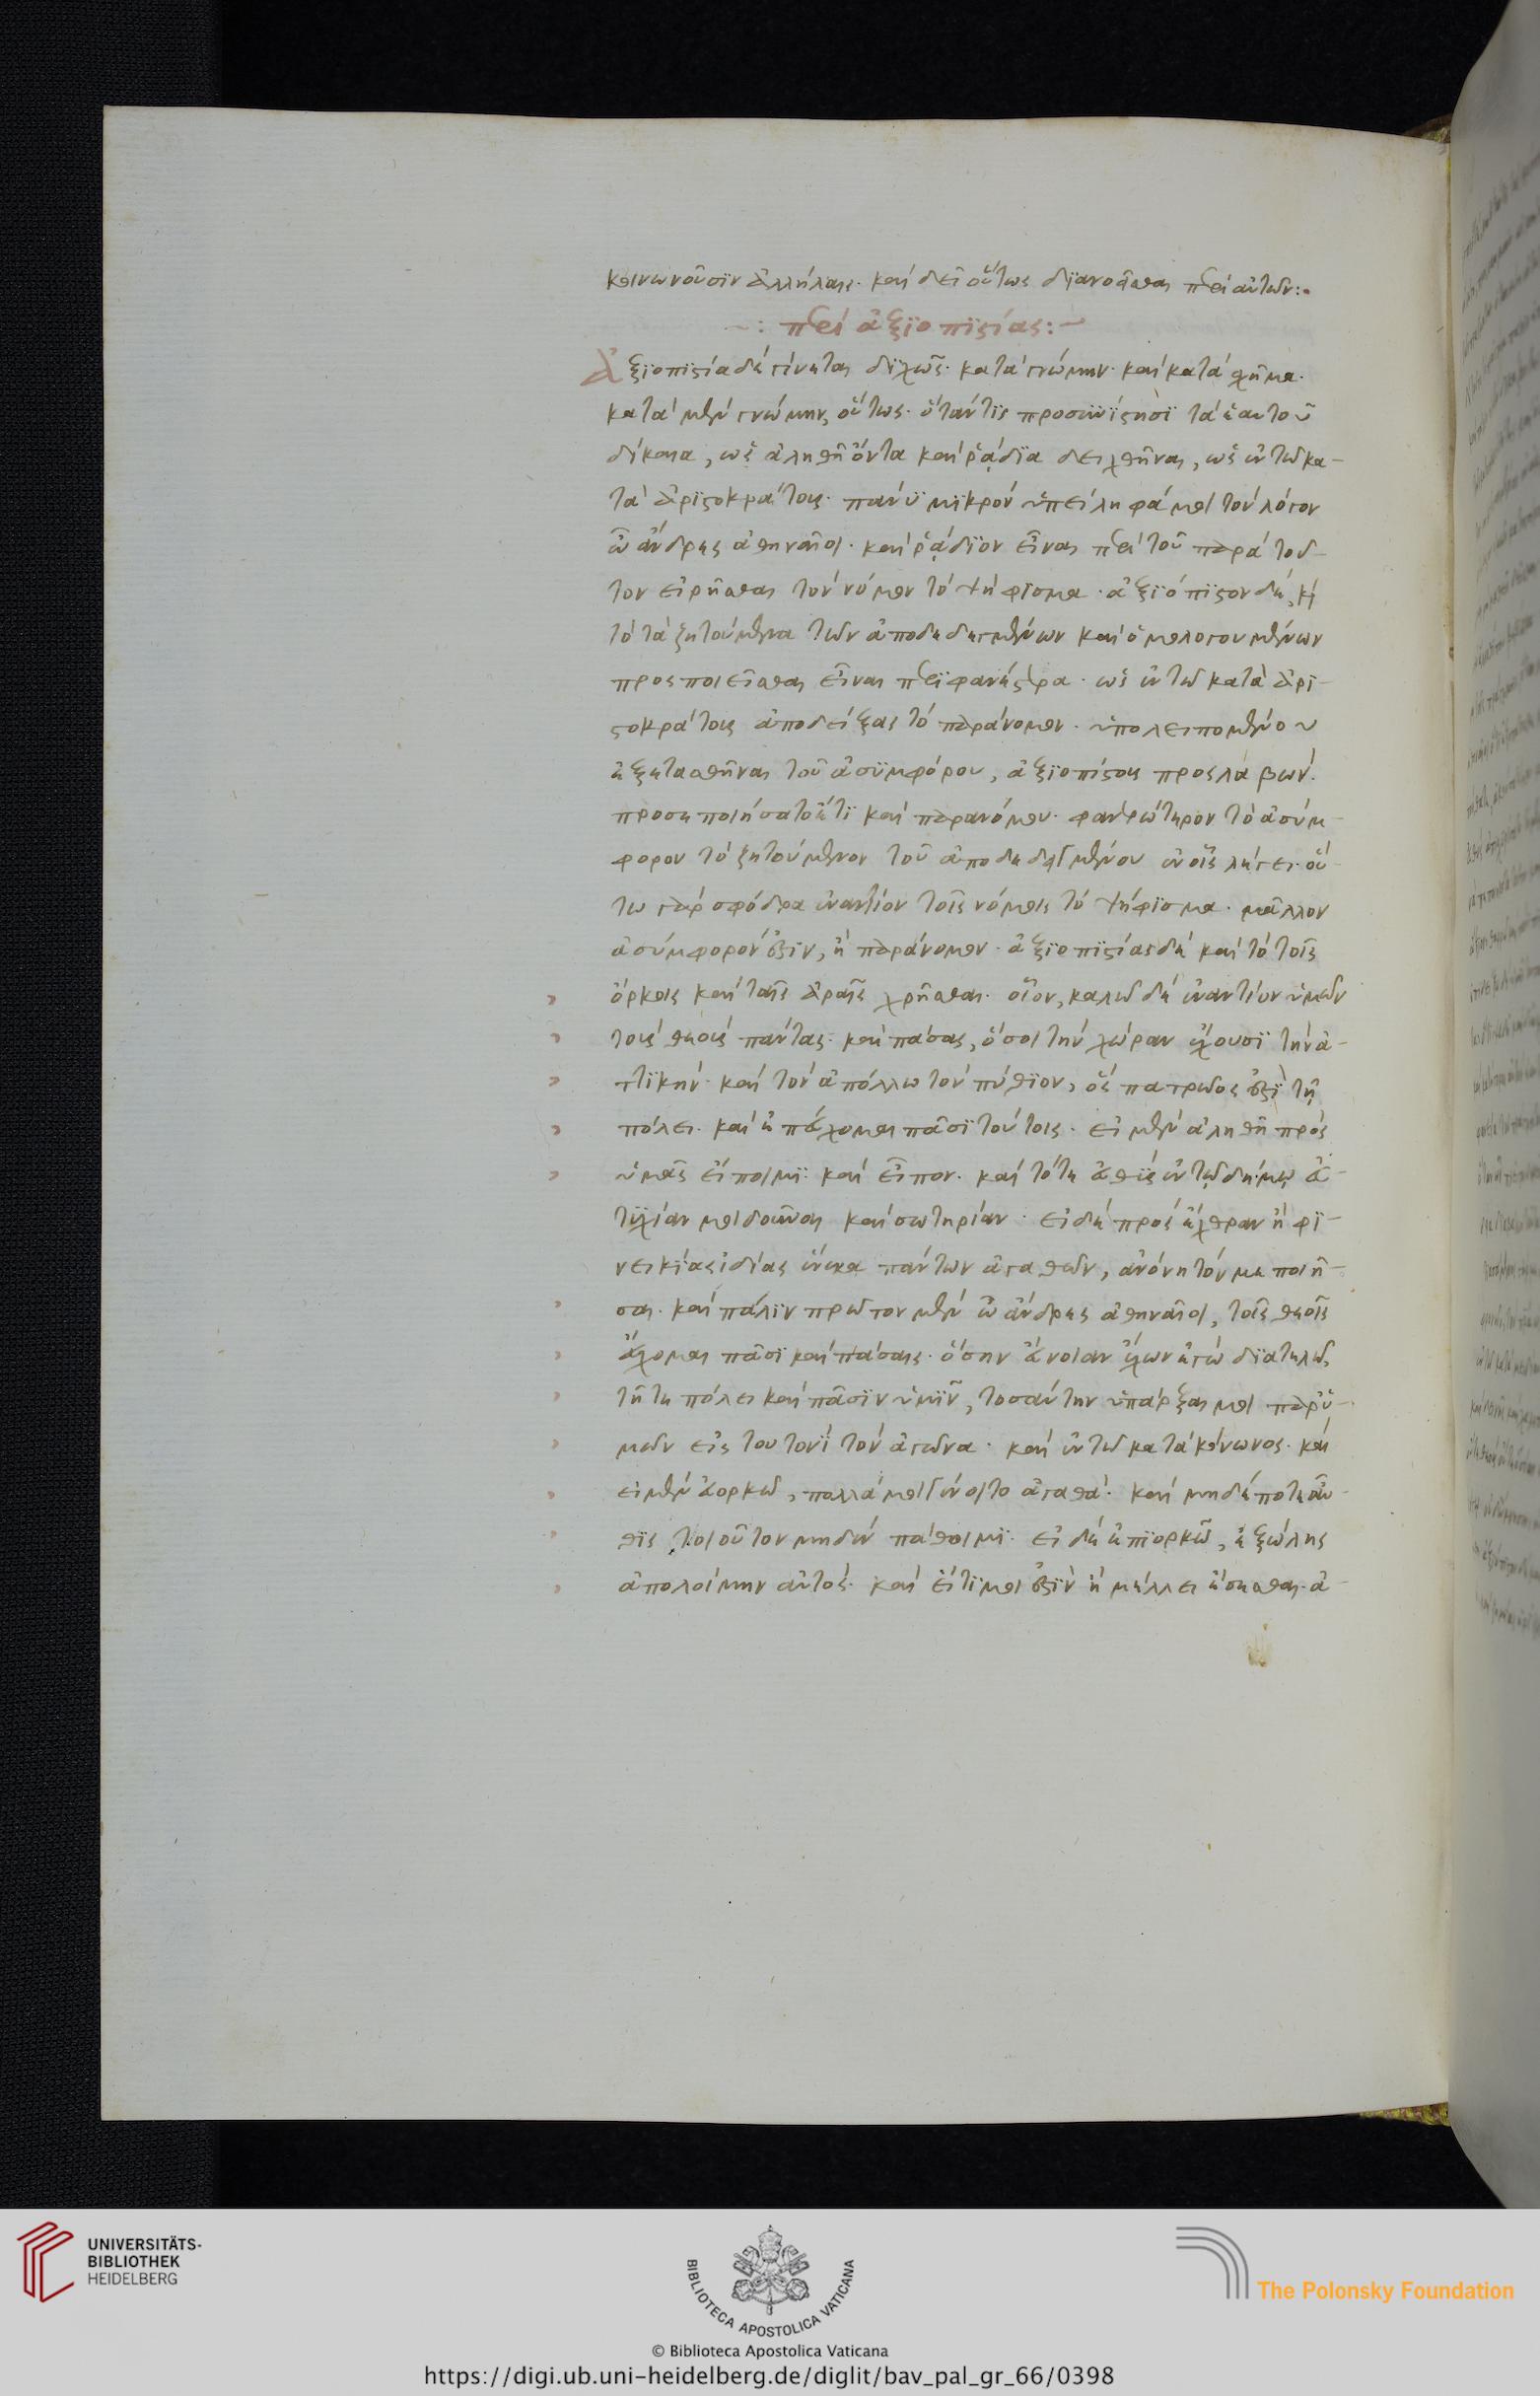 κοινωνοῦσϊν ἀλλήλαις· καὶ δεῖ οὕτως δϊανοεῖσθαι περὶ αὐτῶν:·
~: περὶ ἀξϊοπϊστίας:~
Ἀξϊοπϊστία δὲ γίνεται δϊχῶς· κατὰ γνώμην· καὶ κατὰ σχῆμα·
κατὰ μὲν γνώμην, οὕτως· ὅτάν τϊς προσϋϊστησϊ τὰ ἑαυτοῦ
δίκαια, ὡς ἀληθῆ ὄντα καὶ ῥᾴδϊα δειχθῆναι, ὡς ἐν τῶ κα-
τὰ ἀρϊστοκράτους· πάνϋ μϊκρὸν ὑπείληφά μοι τὸν λόγον
ὦ ἄνδρες ἀθηναῖοι· καὶ ῥᾴδϊον εἶναι περὶ τοῦ παρὰ τοῦ-
τον εἰρῆσθαι τὸν νόμον τὸ ψήφϊσμα· ἀξϊόπϊστον δὲ, κὶ
τὸ τὰ ζητούμενα τῶν ἀποδεδεγμένων καὶ ὁμολογουμένων
προσποιεῖσθαι εἶναι περϊφανέστερα· ὡς ἐν τῶ κατὰ ἀρϊ-
στοκράτους ἀποδείξας τὸ παράνομον· ὑπολειπομένου
ἐξετασθῆναι τοῦ ἀσϋμφόρου, ἀξϊοπίστους προσλαβών·
προσεποιήσατο ἔτϊ καὶ παρανόμου· φανερώτερον τὸ ἀσύμ-
φορον τὸ ζητούμενον τοῦ ἀποδεδειγμένου ἐν οἷς λέγει· οὕ-
τω γὰρ σφόδρα ἐναντίον τοῖς νόμοις τὸ ψήφϊσμα· μᾶλλον
ἀσύμφορόν ἐστϊν, ἢ παράνομον· ἀξϊοπϊστίας δὲ καὶ τὸ τοῖς
ὅρκοις καὶ ταῖς ἀραῖς χρῆσθαι· οἷον, καλῶ δὲ ἐναντίον ὑμῶν
τοὺς θεοὺς πάντας· καὶ πάσας, ὅσοι τὴν χώραν ἔχουσϊ τὴν ἀ-
ττϊκήν· καὶ τὸν ἀπόλλω τὸν πύθϊον, ὃς πατρῶος ἐστϊ τῆ
πόλει· καὶ ἐπεύχομαι πᾶσϊ τούτοις· εἰ μὲν ἀληθῆ πρὸς
ὑμᾶς εἴποιμϊ· καὶ εἶπον· καὶ τότε εὐθϊς ἐν τῷ δήμῳ εὐ-
τϋχίαν μοι δοῦναι καὶ σωτηρίαν· εἰ δὲ πρὸς ἔχθραν ἢ φϊ-
νεικϊας ἰδίας ἕνεκα πάντων ἀγαθῶν, ἀνόνητόν με ποιῆ-
σαι· καὶ πάλϊν πρῶτον μὲν ὦ ἄνδρες ἀθηναῖοι, τοῖς θεοῖς
εὔχομαι πᾶσϊ καὶ πάσαις· ὅσην εὔνοιαν ἔχων ἐγὼ δϊατελῶ,
τῆ τε πόλει καὶ πᾶσϊν ὑμῖν, τοσαύτην ὑπάρξαι μοι παρ' ὑ-
μῶν εἰς τουτονϊ τὸν ἀγῶνα· καὶ ἐν τῶ κατὰ κόνωνος· καὶ
εἰ μὲν εὐορκῶ, πολλά μοι γένοιτο ἀγαθά· καὶ μηδέποτε αὖ-
θϊς τοιοῦτον μηδὲν πάθοιμϊ· εἰ δὲ ἐπϊορκῶ, ἐξώλης
ἀπολοίμην αὐτός· καὶ εἴ τϊ μοι ἐστϊν ἢ μέλλει ἔσεσθαι· ἀ-
UNIVERSITÄTS-
BIBLIOTHEK
HEIDELBERG
BIBLIOTECA APOSTOLICA VATICANA
The Polonsky Foundation
© Biblioteca Apostolica Vaticana
https://digi.ub.uni-heidelberg.de/diglit/bav_pal_gr_66/0398